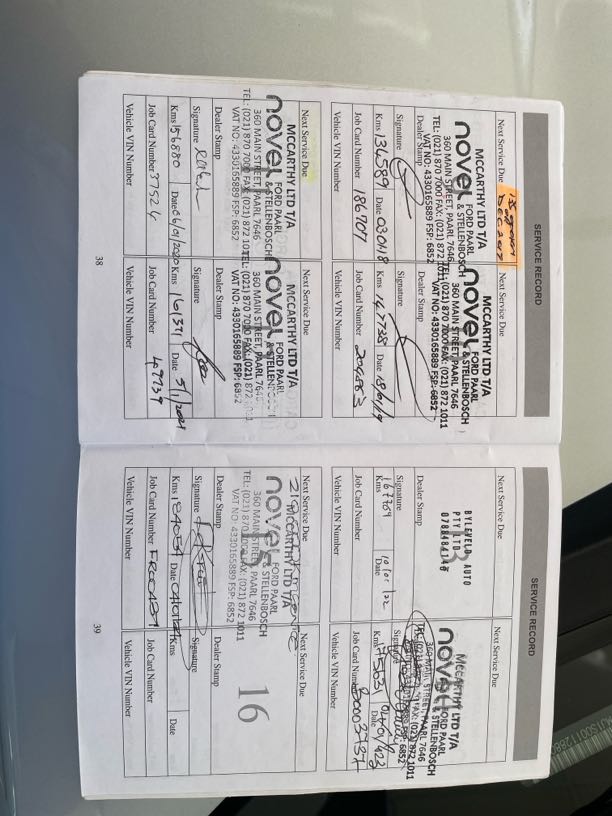 SERVICE RECORD
Next Service Due
DEC 2017
McCARTHY LTD T/A
novel FORD PAARL
& STELLENBOSCH
360 MAIN STREET, PAARL 7646
TEL: (021) 870 7000 FAX: (021) 872 1011
VAT NO: 4330165889 FSP: 6852
Dealer Stamp
Signature
Kms 134589 Date 03/01/18
Job Card Number 186707
Vehicle VIN Number
Next Service Due
McCARTHY LTD T/A
novel FORD PAARL
& STELLENBOSCH
360 MAIN STREET, PAARL 7646
TEL: (021) 870 7000 FAX: (021) 872 1011
VAT NO: 4330165889 FSP: 6852
Dealer Stamp
Signature
Kms 147738 Date 18/01/19
Job Card Number
Vehicle VIN Number
Next Service Due
McCARTHY LTD T/A
novel FORD PAARL
& STELLENBOSCH
360 MAIN STREET, PAARL 7646
TEL: (021) 870 7000 FAX: (021) 872 101
VAT NO: 4330165889 FSP: 6852
Dealer Stamp
Signature
Kms 156880 Date 06/01/2020
Job Card Number 37524
Vehicle VIN Number
Next Service Due
McCARTHY LTD T/A
novel FORD PAARL
& STELLENBOSCH
360 MAIN STREET, PAARL 7646
TEL: (021) 870 7000 FAX: (021) 872 1011
VAT NO: 4330165889 FSP: 6852
Dealer Stamp
Signature
Kms 161391 Date 5/1/2021
Job Card Number 49739
Vehicle VIN Number
38
SERVICE RECORD
Next Service Due
BYLEVELD AUTO
PTY LTD
0788484146
Dealer Stamp
Signature
167769 10/01/22
Kms Date
Job Card Number
Vehicle VIN Number
Next Service Due
McCARTHY LTD T/A
novel FORD PAARL
& STELLENBOSCH
360 MAIN STREET, PAARL 7646
TEL: (021) 870 7000 FAX: (021) 872 1011
Signature
Kms Date
Job Card Number
Vehicle VIN Number
Next Service Due
McCARTHY LTD T/A
novel FORD PAARL
& STELLENBOSCH
360 MAIN STREET, PAARL 7646
TEL: (021) 870 7000 FAX: (021) 872 1011
VAT NO: 4330165889 FSP: 6852
Dealer Stamp
Signature
Kms Date
Job Card Number
Vehicle VIN Number
Next Service Due
16
Dealer Stamp
Signature
Kms Date
Job Card Number
Vehicle VIN Number
39